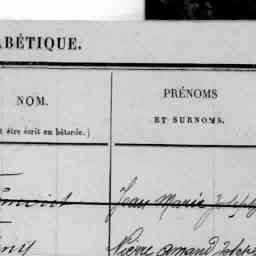 ABÉTIQUE.
NOM.
PRÉNOMS
ET SURNOMS.
t être écrit en bâtarde.)
Jean Marie Joseph
Pierre Amand Joseph